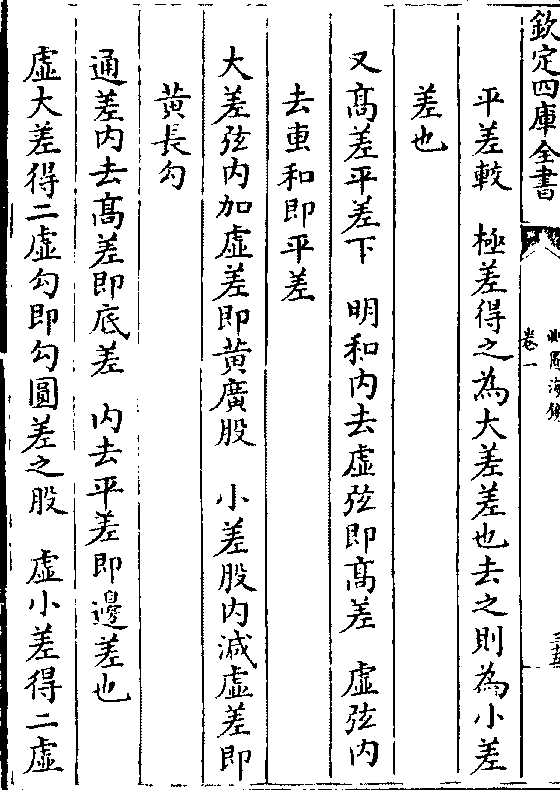 欽定四庫全書
卷一
平差較　極差得之為大差差也去之則為小差
差也
又髙差平差下　明和内去虚弦即髙差　虚弦内
去叀和即平差
大差弦内加虚差即黄廣股　小差股内減虚差即
黄長勾
通差内去髙差即底差　内去平差即邊差也
虚大差得二虚勾即勾圓差之股　虚小差得二虚